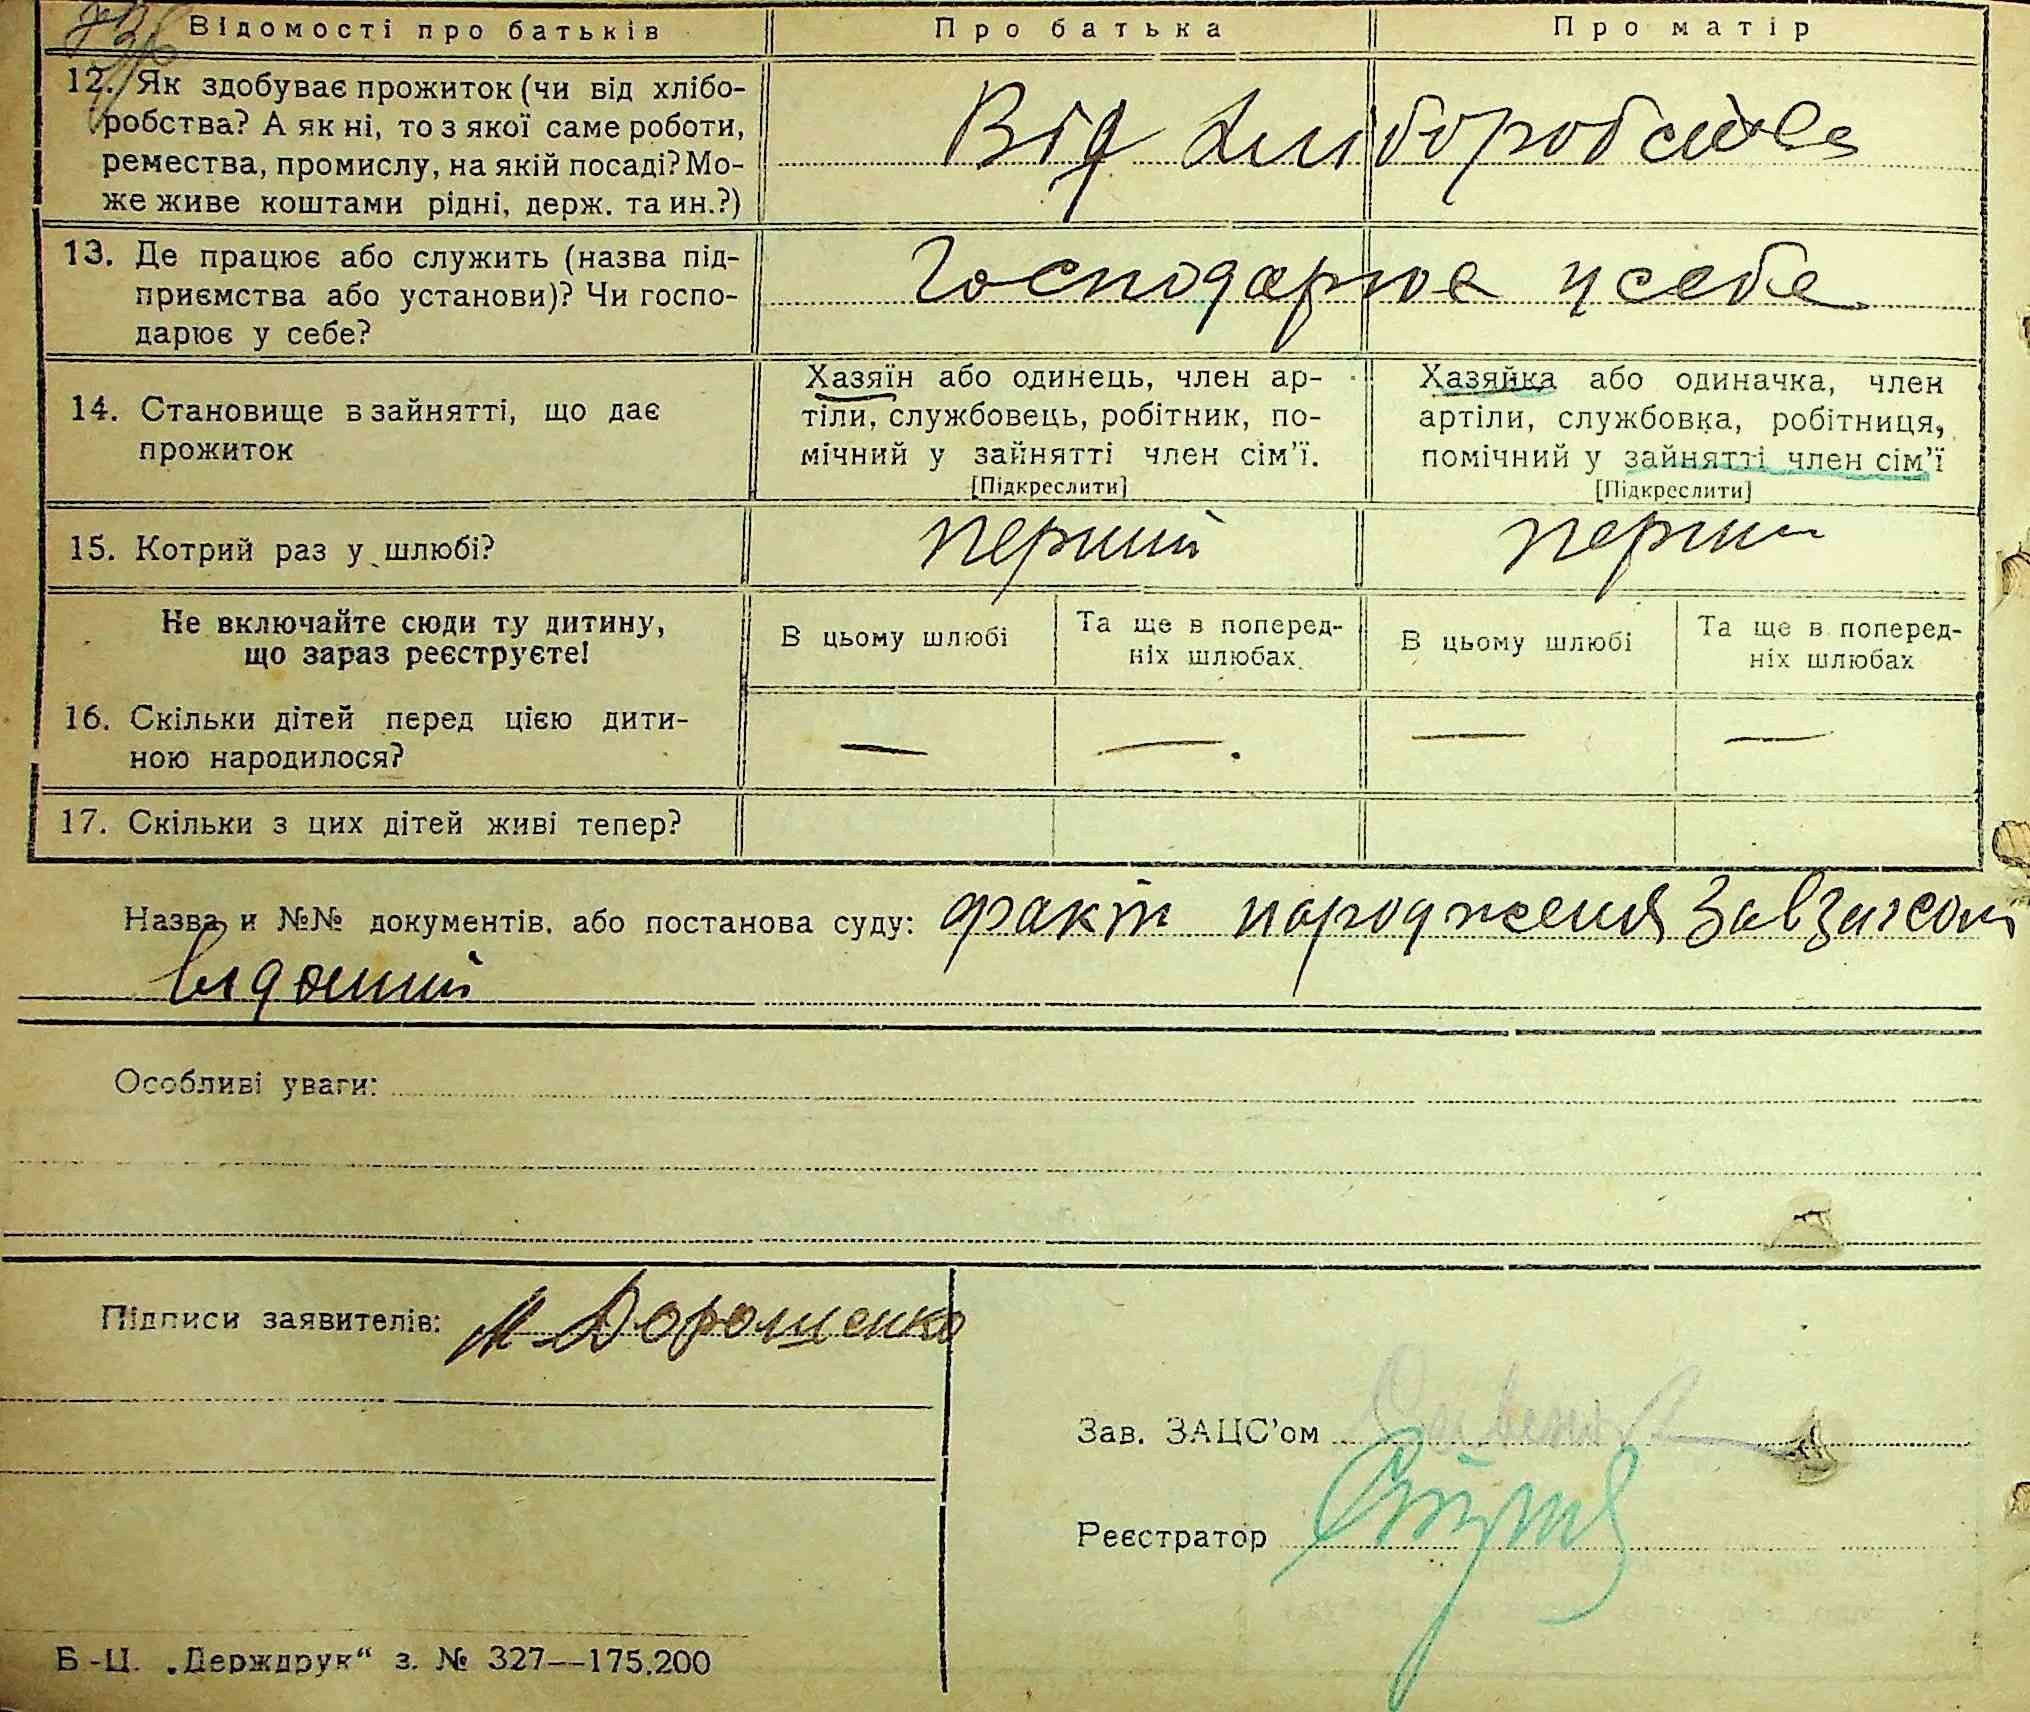 Відомості про батьків Про батька Про матір
12. Як здобуває прожиток (чи від хлібо-
робства? А як ні, то з якої саме роботи,
ремества, промислу, на якій посаді? Мо-
же живе коштами рідні, держ. та ин.?)
Від хліборобства
13. Де працює або служить (назва під-
приємства або установи)? Чи госпо-
дарює у себе?
Господарює у себе
14. Становище в зайнятті, що дає
прожиток
Хазяїн або одинець, член ар-
тіли, службовець, робітник, по-
мічний у зайнятті член сім'ї.
[Підкреслити]
Хазяйка або одиначка, член
артіли, службовка, робітниця,
помічний у зайнятті член сім'ї
[Підкреслити]
15. Котрий раз у шлюбі? перший перший
Не включайте сюди ту дитину,
що зараз реєструєте!
В цьому шлюбі
Та ще в поперед-
ніх шлюбах.
В цьому шлюбі
Та ще в поперед-
ніх шлюбах
16. Скільки дітей перед цією дити-
ною народилося?
— — . — —
17. Скільки з цих дітей живі тепер?
Назва и №№ документів, або постанова суду: факт народження Завзагсом
відомий
Особливі уваги:
Підписи заявителів: М Дорошенко
Зав. ЗАЦС'ом
Реєстратор
Б-Ц. „Держдрук“ з. № 327—175.200